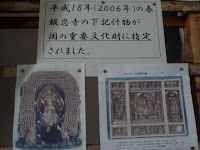 平成18年(2006年)の春
報恩寺の下記什物が
国の重要文化財に指定
されました。